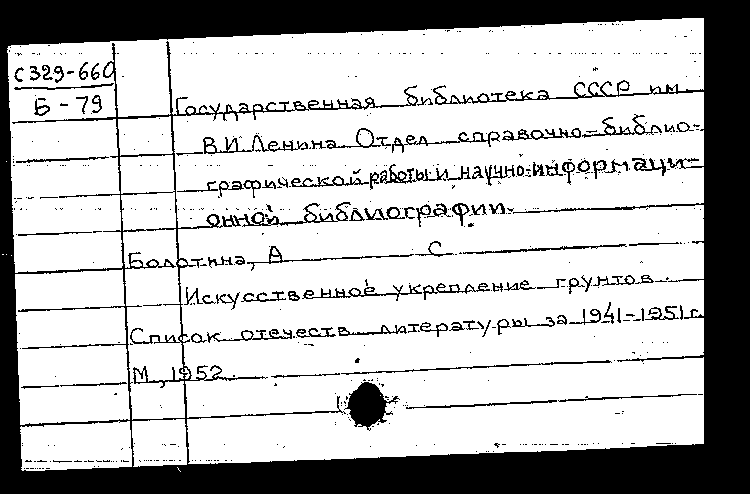 С329-660
Б-79
Государственная библиотека СССР им.
В.И.Ленина. Отдел справочно-библио-
графической работы и научно-информаци-
онной библиографии.
Болотина, А С
Искусственное укрепление грунтов.
Список отечеств. литературы за 1941-1951 г.
М., 1952.